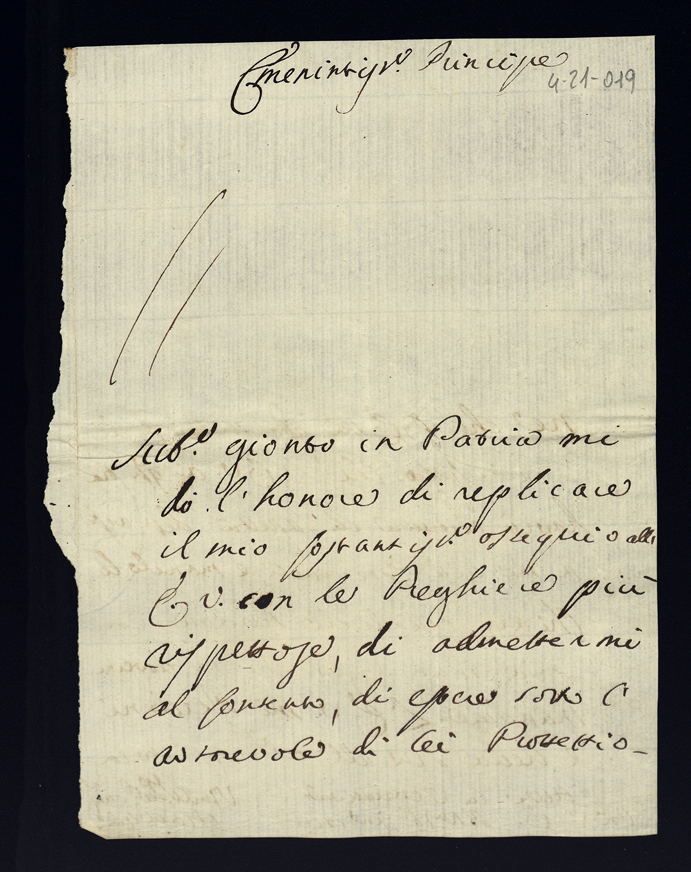 Eminentissmo. Principe
4-21-019
Subo. gionto in Patria mi
dò l'honore di replicare
il mio sostantissmo. ossequio alla
E. V. con le Preghiere più
rispettose, di admettermi
al contento, di essere sotto l'
autorevole di lei Prottettio-